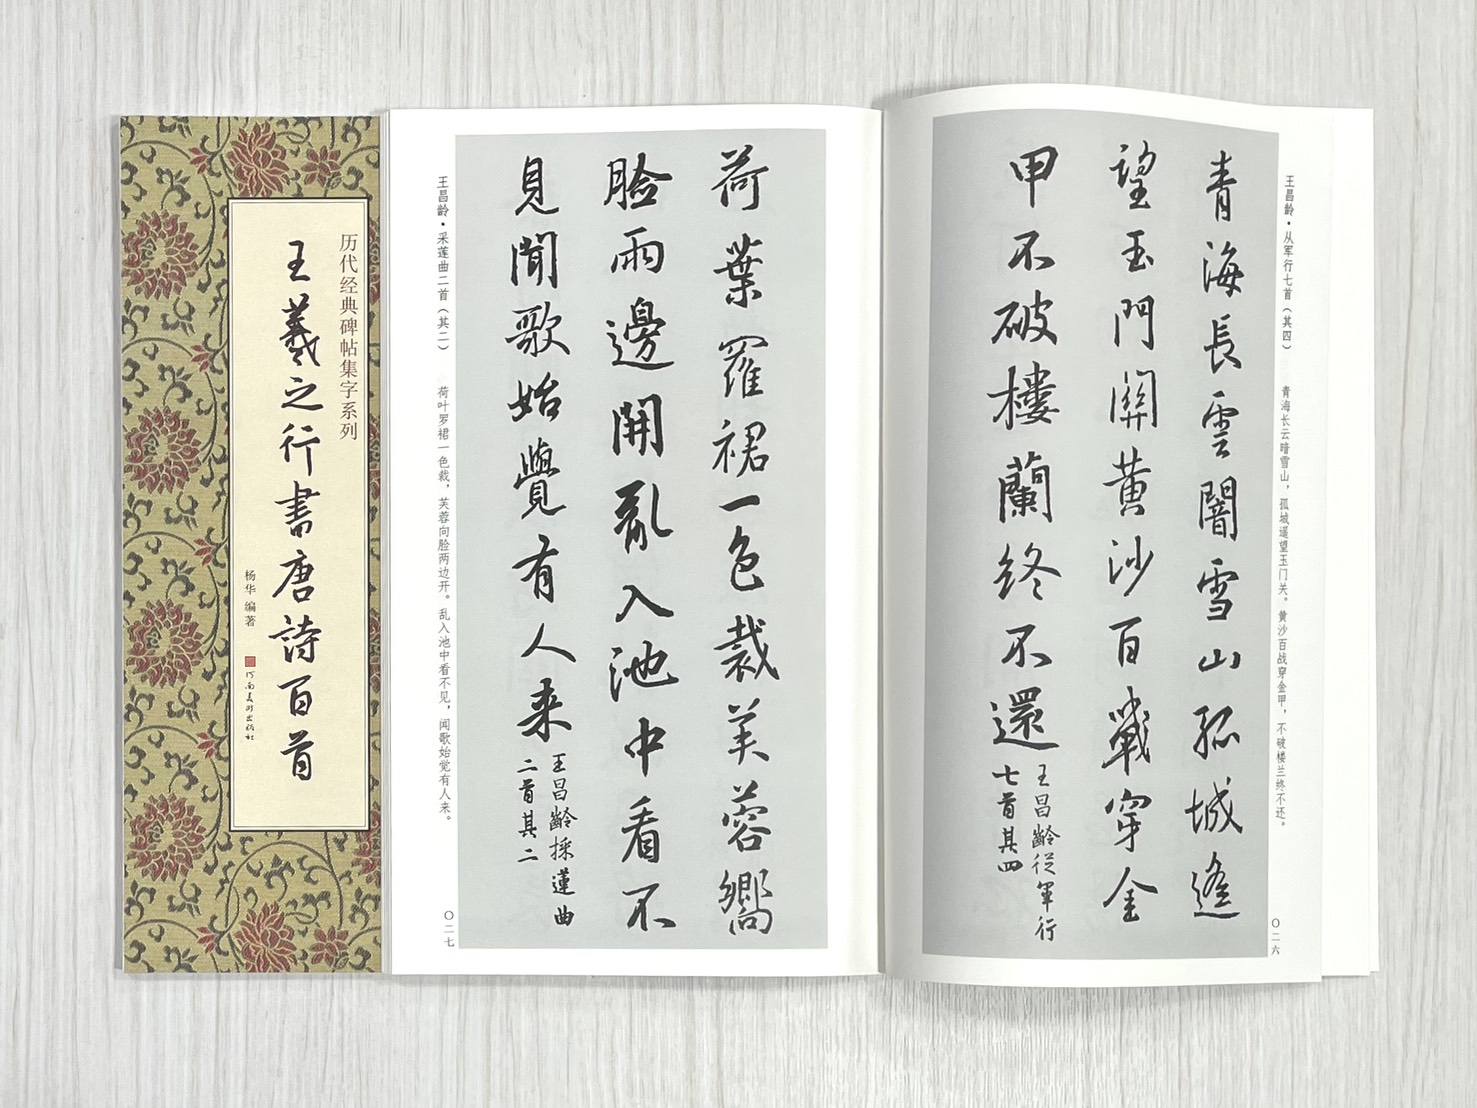 历代经典碑帖集字系列
王羲之行書唐詩百首
杨华 编著
河南美術出版社
王昌龄·从军行七首（其四） 青海长云暗雪山，孤城遥望玉门关。黄沙百战穿金甲，不破楼兰终不还。
〇二六
青海長雲闇雪山孤城遙
望玉門關黄沙百戰穿金
甲不破樓蘭終不還
王昌齡從軍行
七首其四
荷葉羅裙一色裁芙蓉嚮
臉兩邊開亂入池中看不
見聞歌始覺有人来
王昌齡採蓮曲
二首其二
王昌龄·采莲曲二首（其二） 荷叶罗裙一色裁，芙蓉向脸两边开。乱入池中看不见，闻歌始觉有人来。
〇二七